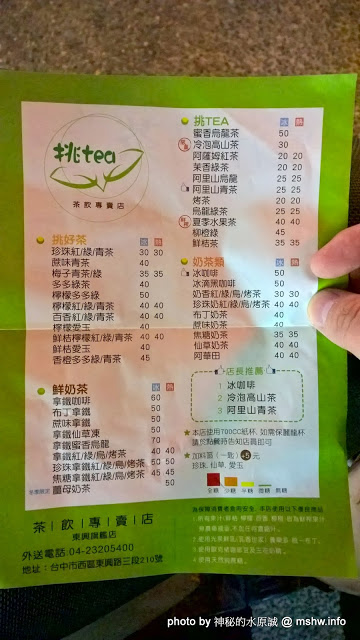 挑tea
茶飲專賣店
挑TEA 冰 熱
蜜香烏龍茶 50
冷泡高山茶 30
阿薩姆紅茶 20 20
茉香綠茶 20 20
阿里山烏龍 25 25
阿里山青茶 25 25
烤茶 20 20
烏龍綠茶 25 25
夏季水果茶 40 40
柳橙綠 45
鮮桔茶 35 35
挑好茶 冰 熱
珍珠紅/綠/青茶 30 30
蔗味青茶 40
梅子青茶/綠 35 35
多多綠茶 40
檸檬多多綠 50
檸檬紅/綠/青茶 40 40
百香紅/綠/青茶 40 40
檸檬愛玉 40
鮮桔檸檬紅/綠/青茶 40 40
鮮桔愛玉 40
香橙多多綠/青茶 45
奶茶類 冰 熱
冰咖啡 50
冰滴黑咖啡 50
奶香紅/綠/烏/烤茶 30 30
珍珠奶紅/綠/烏/烤茶 40 40
布丁奶茶 40
蔗味奶茶 50
焦糖奶茶 35 35
仙草奶茶 40 40
阿華田 40 40
店長推薦
1 冰咖啡
2 冷泡高山茶
3 阿里山青茶
鮮奶茶 冰 熱
拿鐵咖啡 60
布丁拿鐵 50
蔗味拿鐵 50
拿鐵仙草凍 50
拿鐵蜜香烏龍 70
拿鐵紅/綠/烏/烤茶 40 40
珍珠拿鐵紅/綠/烏/烤茶 50 50
焦糖拿鐵紅/綠/烏/烤茶 45 45
薑母奶茶 50
本店使用700CC紙杯,如需保麗龍杯
請於點餐時告知店員即可
加料區(一匙) +5元
珍珠.仙草.愛玉
全糖 少糖 半糖 微糖 無糖
茶飲專賣店
東興旗艦店
外送電話:04-23205400
地址:台中市西區東興路三段210號
photo by 神秘的水原誠 @ mshw.info